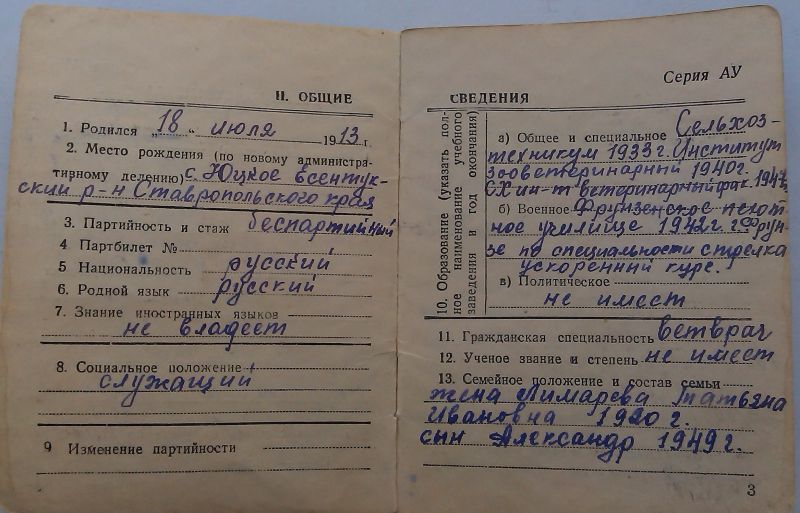 II. ОБЩИЕ
1. Родился „18“ июля 1913 г.
2. Место рождения (по новому администра-
тивному делению) с. Юцкое ессентук-
ский р-н Ставропольского края
3. Партийность и стаж беспартийный
4 Партбилет №
5 Национальность русский
6. Родной язык русский
7. Знание иностранных языков
не владеет
8. Социальное положение
служащий
9 Изменение партийности
Серия АУ
СВЕДЕНИЯ
10. Образование (указать пол-
ное наименование учебного
заведения и год окончания)
а) Общее и специальное Сельхоз-
техникум 1933 г. Институт
зооветеринарный 1940г.
СХ ин-т ветеринарный фак.
б) Военное Фрунзенское пехот-
ное училище 1942 г. г. Фрун-
зе по специальности стрелка
ускоренный курс.
в) Политическое
не имеет
11. Гражданская специальность ветврач
12. Ученое звание и степень не имеет
13. Семейное положение и состав семьи
жена Лимарева Татьяна
Ивановна 1920 г.
сын Александр 1949 г.
3